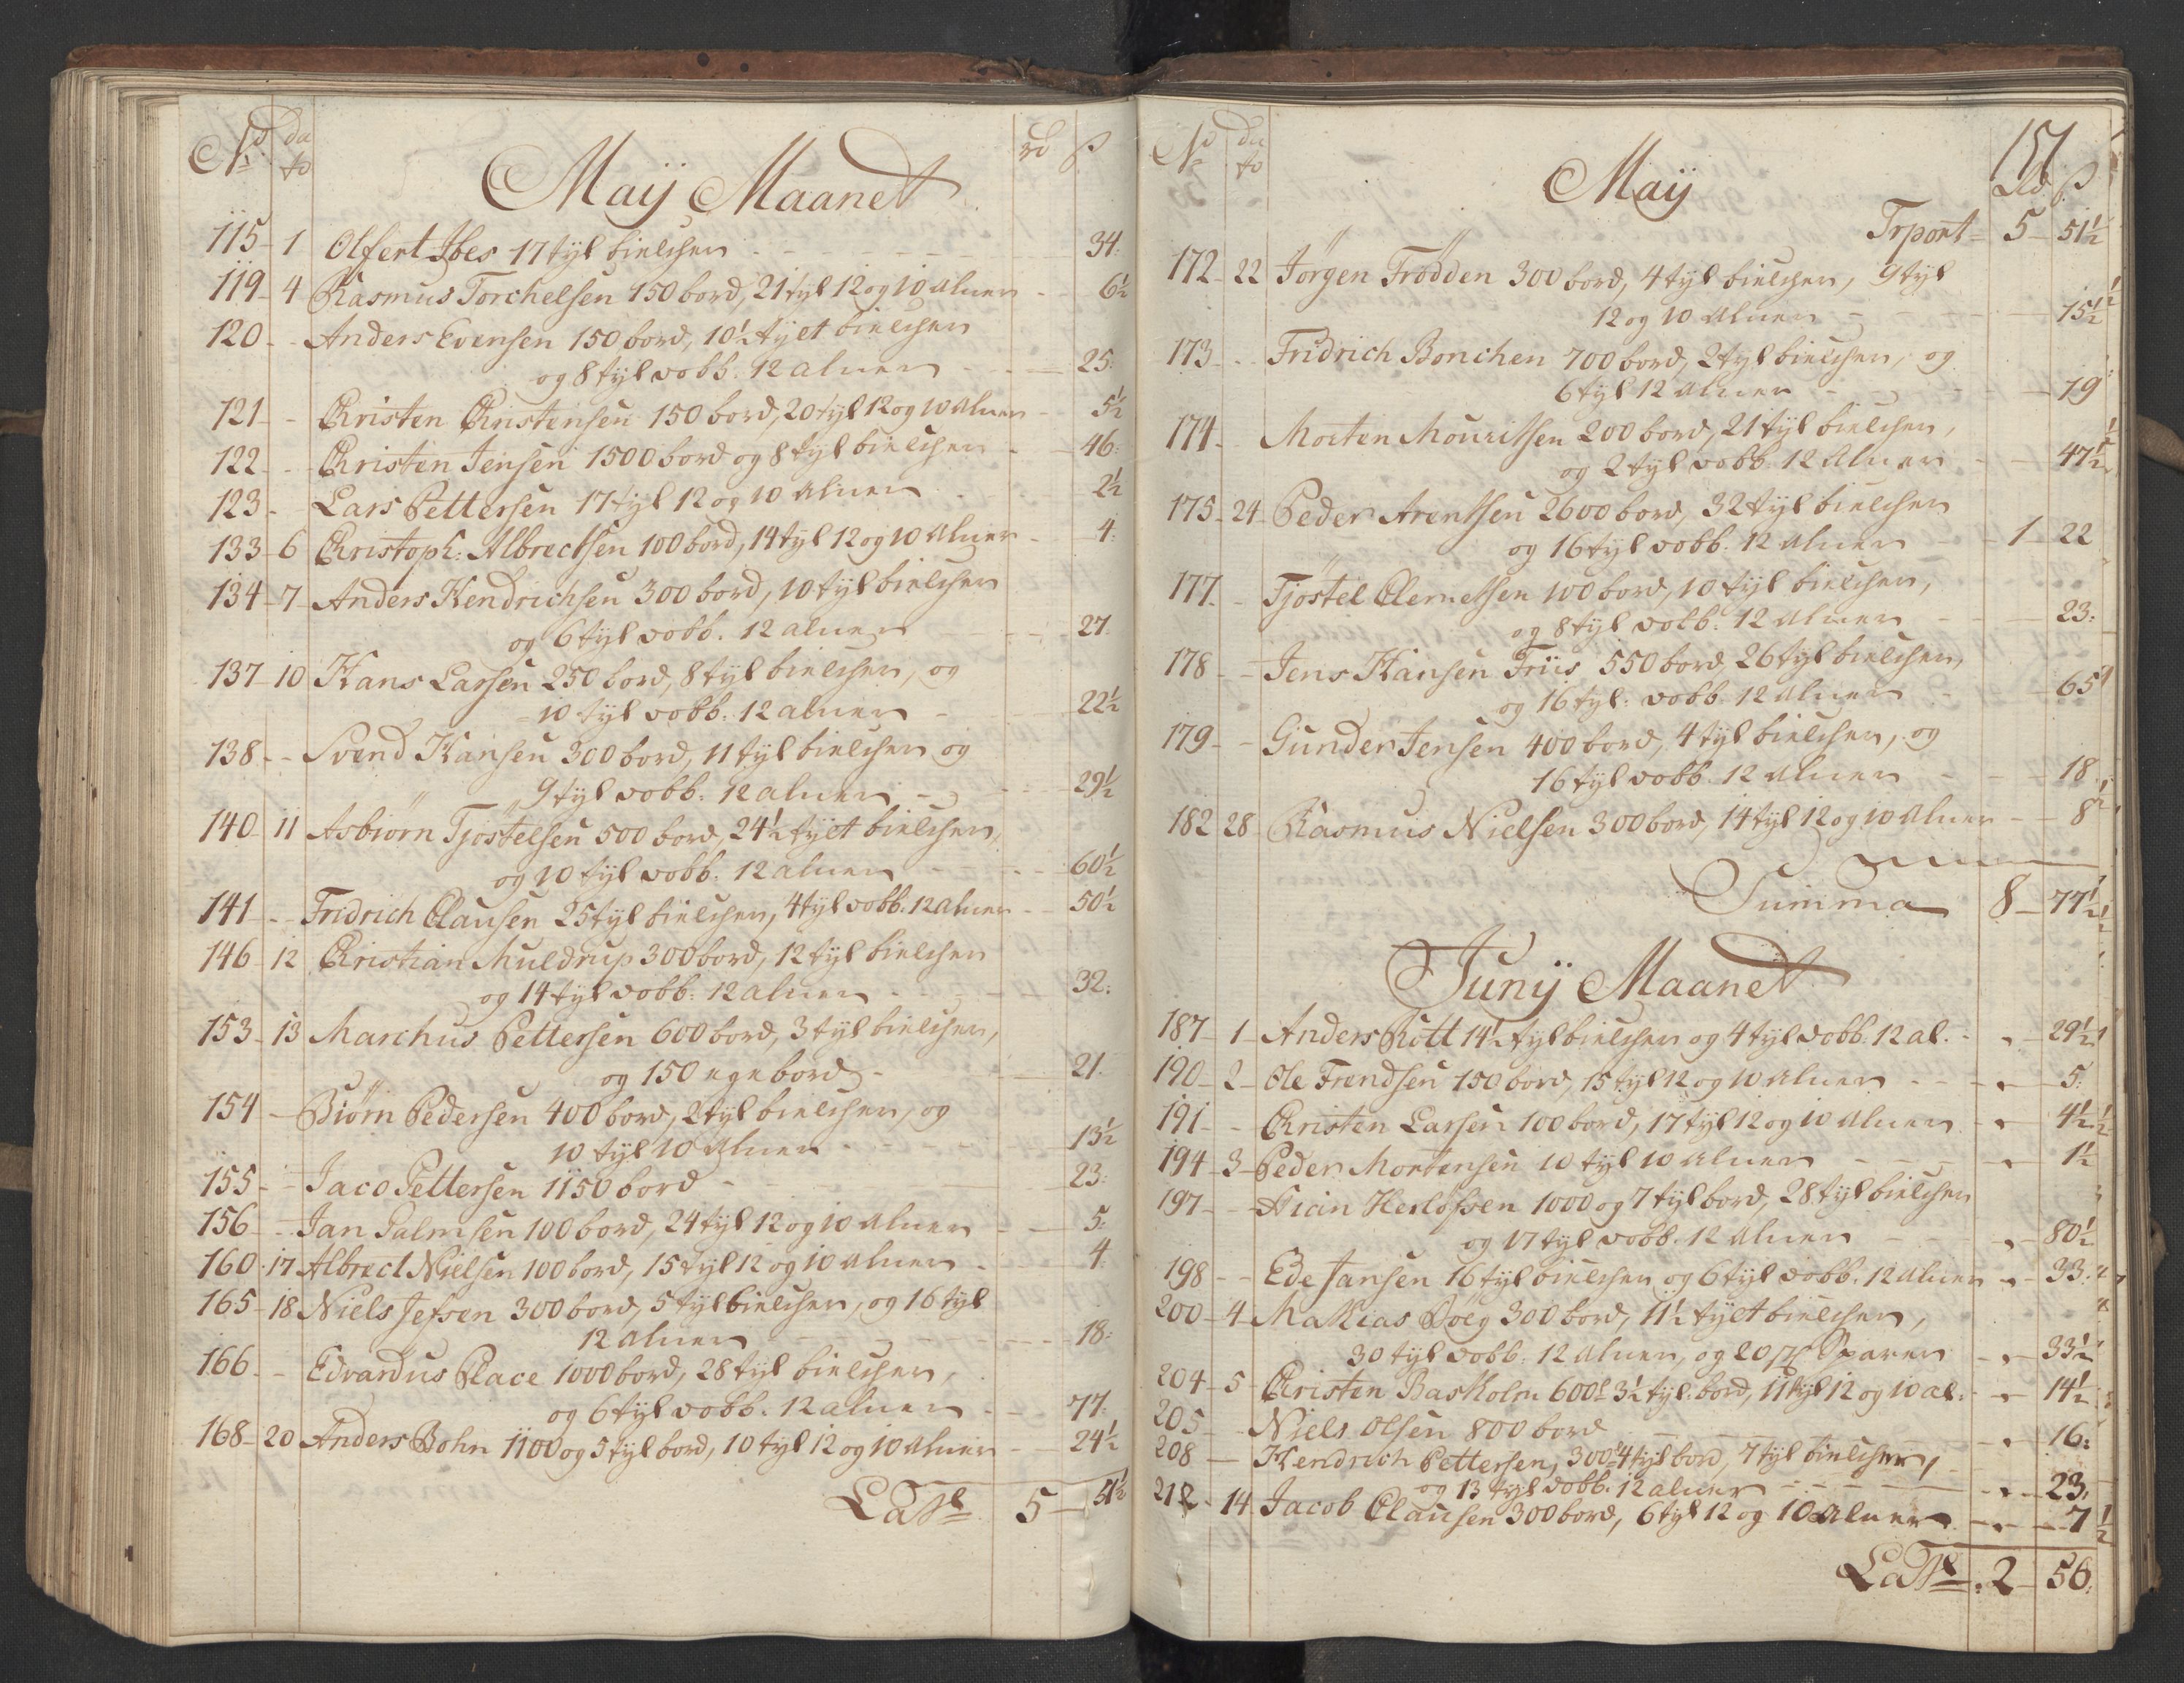 No dato Maij Maanet rd ß
115 1 Olfert Ibes 17 tÿl bielcher 34.
119 4 Rasmus Torchelsen 150 bord, 21 tÿl 12 og 10 alner 6½
120 Anders Evensen 150 bord, 10½ tÿlt bielcher
og 8 tÿl dobb. 12 alner 25.
121 Christen Christensen 150 bord, 20 tÿl 12 og 10 Alner 5½
122 Christen Jensen 1500 bord og 8 tÿl bielcher 46.
123 Lars Pettersen 17 tÿl 12 og 10 alner 2½
133 6 Christoph: Albrectsen 100 bord, 14 tÿl 12 og 10 Alner 4.
134 7 Anders Hendrichsen 300 bord, 10 tÿl bielcher
og 6 tÿl dobb. 12 alner 27.
137 10 Hans Larsen 250 bord, 8 tÿl bielcher, og
10 tÿl dobb. 12 alner 22½
138 Svend Hansen 300 bord, 11 tÿl bielcher og
9 tÿl dobb. 12 alner 29½
140 11 Asbiørn Tjøstelsen 500 bord, 24½ tÿlt bielcher,
og 10 tÿl dobb. 12 alner 60½
141 Fridrich Clausen 25 tÿl bielcher, 4 tÿl dobb. 12 alner 50½
146 12 Christian Muldrup 300 bord, 12 tÿl bielcher
og 14 tÿl dobb. 12 alner 32.
153 13 Marchus Pettersen 600 bord, 3 tÿl bielcher,
og 150 ege bord 21.
154 Biørn Pedersen 400 bord, 2 tÿl bielcher, og
10 tÿl 10 Alner 13½
155 Jaco Pettersen 1150 bord 23.
156 Jan Palmsen 100 bord, 24 tÿl 12 og 10 alner 5.
160 17 Albrect Nielsen 100 bord, 15 tÿl 12 og 10 alner 4.
165 18 Niels Jefsen 300 bord, 5 tÿl bielcher, og 16 tÿl
12 Alner 18.
166 Edvardus Place 1000 bord, 28 tÿl bielcher,
og 6 tÿl dobb. 12 alner 77.
168 20 Anders Bohn 1100 og 5 tÿl bord, 10 tÿl 12 og 10 Alner 24½
Latr 5 51½
151
No dato Maij Rd ß
Trport 5 51½
172 22 Jørgen Frødden 300 bord, 4 tÿl bielcher, 9 tÿl
12 og 10 Alner 15½
173 Fridrich Bonchen 700 bord, 2 tÿl bielcher, og
6 tÿl 12 Alner 19
174 Morten Mouritsen 200 bord, 21 tÿl bielcher,
og 2 tÿl dobb. 12 Alner 47½
175 24 Peder Arentsen 2600 bord, 32 tÿl bielcher
og 16 tÿl dobb. 12 Alner 1 22
177 Tjøstel Clemetsen 100 bord, 10 tÿl bielcher,
og 8 tÿl dobb. 12 Alner 23.
178 Jens Hansen Friis 550 bord 26 tÿl bielcher,
og 16 tÿl: dobb. 12 Alner 65
179 Gunder Jensen 400 bord, 4 tÿl bielcher, og
16 tÿl dobb. 12 Alner 18
182 28 Rasmus Nielsen 300 bord, 14 tÿl 12 og 10 Alner 8
Summa 8 77½
Junij Maanet
187 1 Anders Rott 14½ tÿl bielcher og 4 tÿl dobb. 12 al. 29½
190 2 Ole Frendsen 150 bord, 15 tÿl 12 og 10 Alner 5.
191 Christen Larsen 100 bord, 17 tÿl 12 og 10 Alner 4½
194 3 Peder Mortensen 10 tÿl 10 Alner 1½
197 Herlofsen 1000 og 7 tÿl bord, 28 tÿl bielcher
og 17 tÿl dobb. 12 Alner 80½
198 Ede Jansen 16 tÿl bielcher og 6 tÿl dobb. 12 Alner 33.
200 4 Mathias 300 bord, 11½ tÿlt bielcher,
30 tÿl dobb. 12 Alner, og 20 Sparer 33½
204 5 Christen Bastholm 600 & 3½ tÿl bord, 11 tÿl 12 og 10 al. 14½
205 Niels Olsen 800 bord 16.
208 Hendrich Pettersen, 300 & 4 tÿl bord, 7 tÿl bielcher,
og 13 tÿl dobb. 12 alner 23.
212 14 Jacob Clausen 300 bord, 6 tÿl 12 og 10 Alner 7½
Latr 2 56.